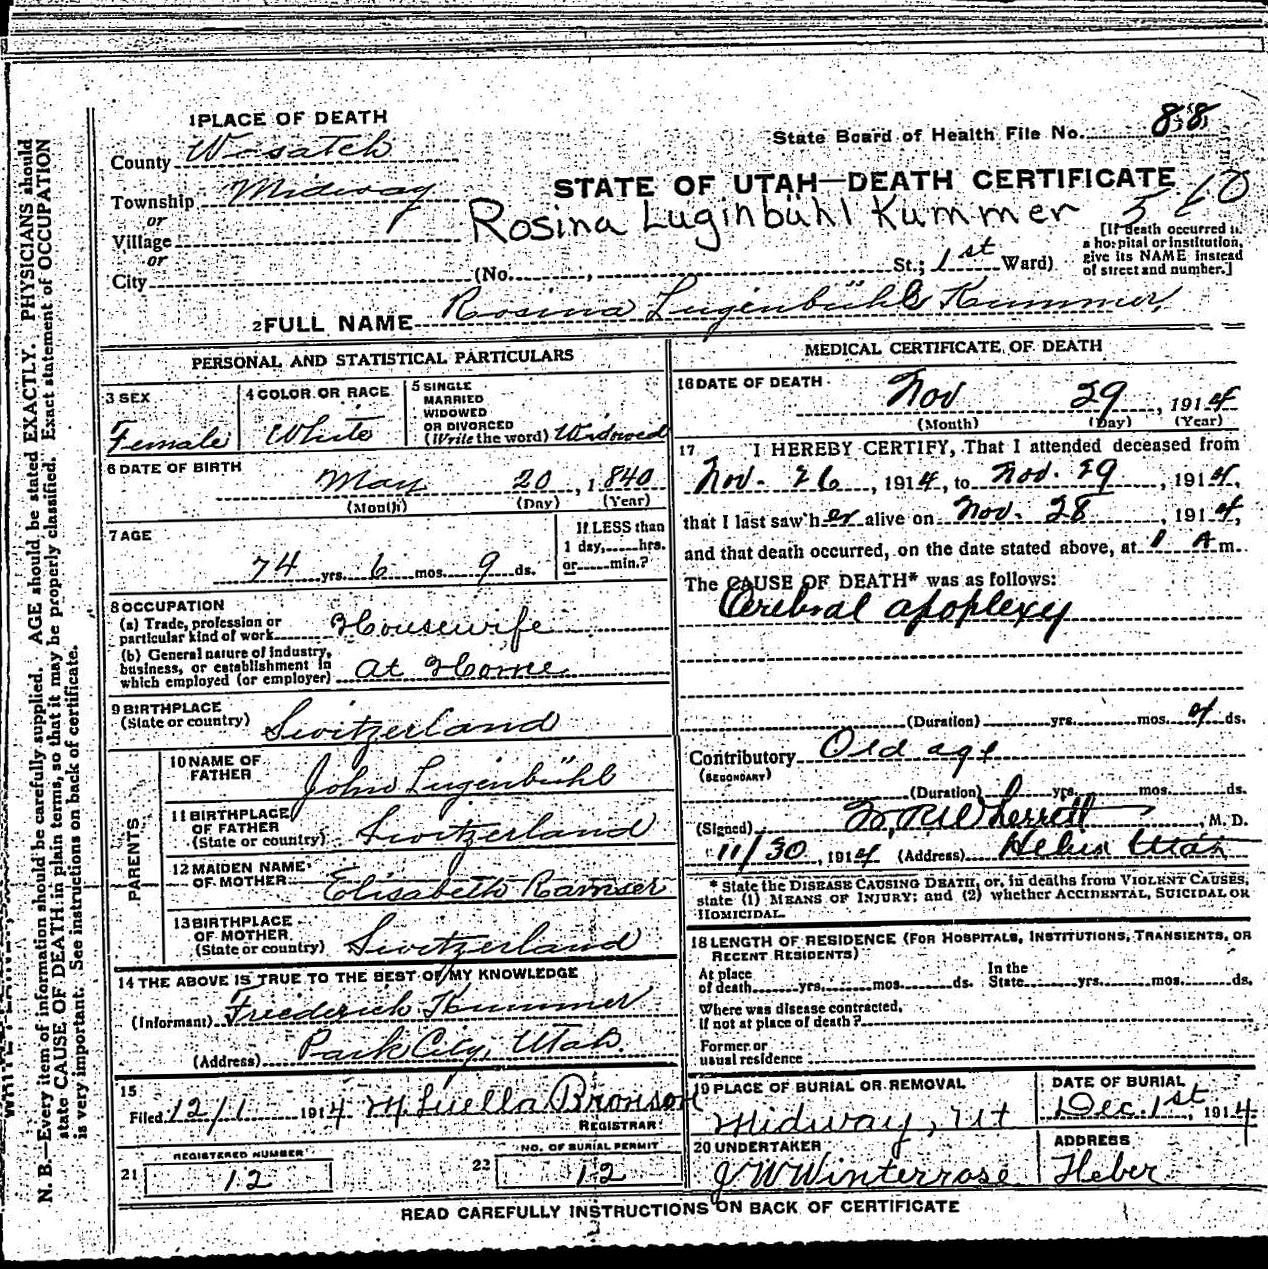 N. B.—Every item of information should be carefully supplied. AGE should be stated EXACTLY. PHYSICIANS should
state CAUSE OF DEATH in plain terms, so that it may be properly classified. Exact statement of OCCUPATION
is very important. See instructions on back of certificate.
State Board of Health File No. 88
STATE OF UTAH—DEATH CERTIFICATE
560
1 PLACE OF DEATH
County Wasatch
Township Midway
or
Village
or
City
Rosina Luginbühl Kummer
(No. , St.; 1st Ward)
[If death occurred in
a hospital or institution,
give its NAME instead
of street and number.]
2 FULL NAME Rosina Lugenbühl Kummer,
PERSONAL AND STATISTICAL PARTICULARS
3 SEX
Female
4 COLOR OR RACE
White
5 SINGLE
MARRIED
WIDOWED
OR DIVORCED
(Write the word) Widowed
6 DATE OF BIRTH
May 20, 1840
(Month) (Day) (Year)
7 AGE
74 yrs. 6 mos. 9 ds.
If LESS than
1 day, hrs.
or min.?
8 OCCUPATION
(a) Trade, profession or
particular kind of work Housewife
(b) General nature of industry,
business, or establishment in
which employed (or employer) at Home
9 BIRTHPLACE
(State or country) Switzerland
PARENTS
10 NAME OF
FATHER John Lugenbühl
11 BIRTHPLACE
OF FATHER
(State or country) Switzerland
12 MAIDEN NAME
OF MOTHER Elisabeth Ramser
13 BIRTHPLACE
OF MOTHER
(State or country) Switzerland
14 THE ABOVE IS TRUE TO THE BEST OF MY KNOWLEDGE
(Informant) Friederich Kummer
(Address) Park City, Utah.
15
Filed 12/1 1914 M Luella Bronson
REGISTRAR
21 REGISTERED NUMBER
12
22 NO. OF BURIAL PERMIT
12
MEDICAL CERTIFICATE OF DEATH
16 DATE OF DEATH
Nov 29, 1914
(Month) (Day) (Year)
17 I HEREBY CERTIFY, That I attended deceased from
Nov. 26, 1914, to Nov. 29, 1914,
that I last saw her alive on Nov. 28, 1914,
and that death occurred, on the date stated above, at 1 A m.
The CAUSE OF DEATH* was as follows:
Cerebral apoplexy
(Duration) yrs. mos. 4 ds.
Contributory Old age
(SECONDARY)
(Duration) yrs. mos. ds.
(Signed) Wherritt, M. D.
11/30, 1914 (Address) Heber Utah
* State the DISEASE CAUSING DEATH, or, in deaths from VIOLENT CAUSES,
state (1) MEANS OF INJURY; and (2) whether ACCIDENTAL, SUICIDAL OR
HOMICIDAL.
18 LENGTH OF RESIDENCE (FOR HOSPITALS, INSTITUTIONS, TRANSIENTS, OR
RECENT RESIDENTS)
At place
of death yrs. mos. ds.
In the
State yrs. mos. ds.
Where was disease contracted,
if not at place of death?
Former or
usual residence
19 PLACE OF BURIAL OR REMOVAL
Midway, Ut
DATE OF BURIAL
Dec. 1st, 1914
20 UNDERTAKER
J W Winterrose
ADDRESS
Heber
READ CAREFULLY INSTRUCTIONS ON BACK OF CERTIFICATE